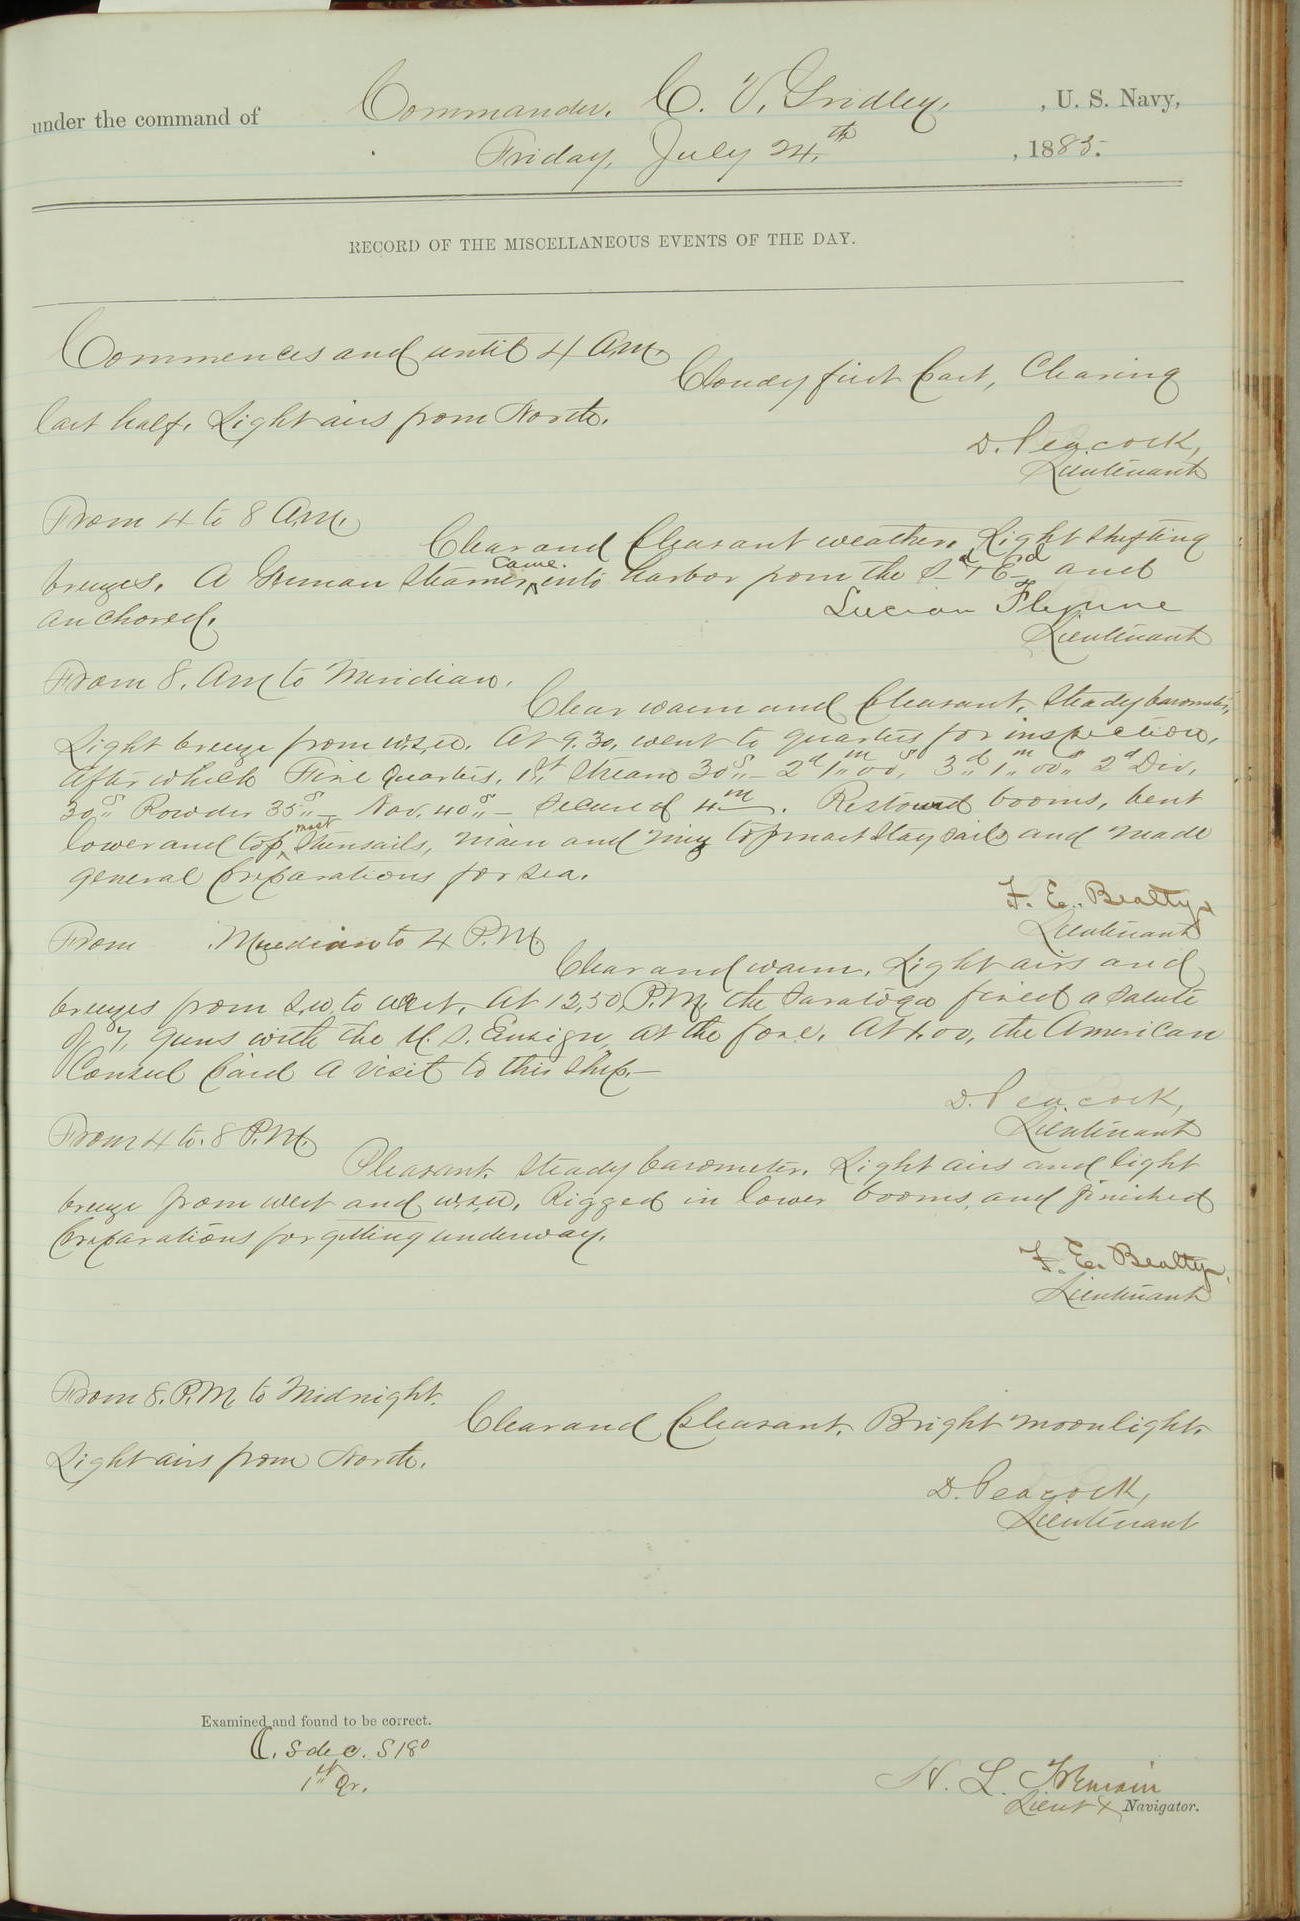 under the command of Commander. C. V. Gridley, , U. S. Navy,
Friday, July 24.th , 1885.
RECORD OF THE MISCELLANEOUS EVENTS OF THE DAY.
Commences and until 4 A.M.
Cloudy first part, Clearing
last half. Light airs from North.
D. Peacock,
Lieutenant
From 4 to 8 A.M.
Clear and pleasant weather. Light shifting
breezes. A German Steamer came into harbor from the S.d & E.d and
anchored.
Lucian Flynne
Lieutenant
From 8. A.M. to Meridian.
Clear warm and pleasant. Steady barometer,
Light breeze from W.S.W. At 9.30, went to quarters for inspection,
after which Fire Quarters. 1st Stream 30s — 2d 1m 00s, 3d 1m 00s 2d Div.
30s Powder 35s — Nav. 40s — Secured 4m. Restowed booms, bent
lower and topmast stunsails, main and miz topmast staysails and made
general preparations for sea.
F. E. Beatty
Lieutenant
From Meridian to 4 P.M.
Clear and warm. Light airs and
breezes from S.W. to West. At 12.50 P.M. the Saratoga fired a salute
of 7, guns with the U. S. Ensign at the fore. At 1.00, the American
Consul paid a visit to this ship.—
D. Peacock,
Lieutenant
From 4 to. 8 P.M.
Pleasant. Steady barometer. Light airs and light
breeze from west and W.S.W. Rigged in lower booms, and finished
preparations for getting underway.
F. E. Beatty,
Lieutenant
From 8. P.M. to Midnight.
Clear and pleasant. Bright moonlight.
Light airs from North.
D. Peacock,
Lieutenant
Examined and found to be correct.
☾. S dec. S 18°
1st Qr.
H. L. Tremain
Lieut & Navigator.